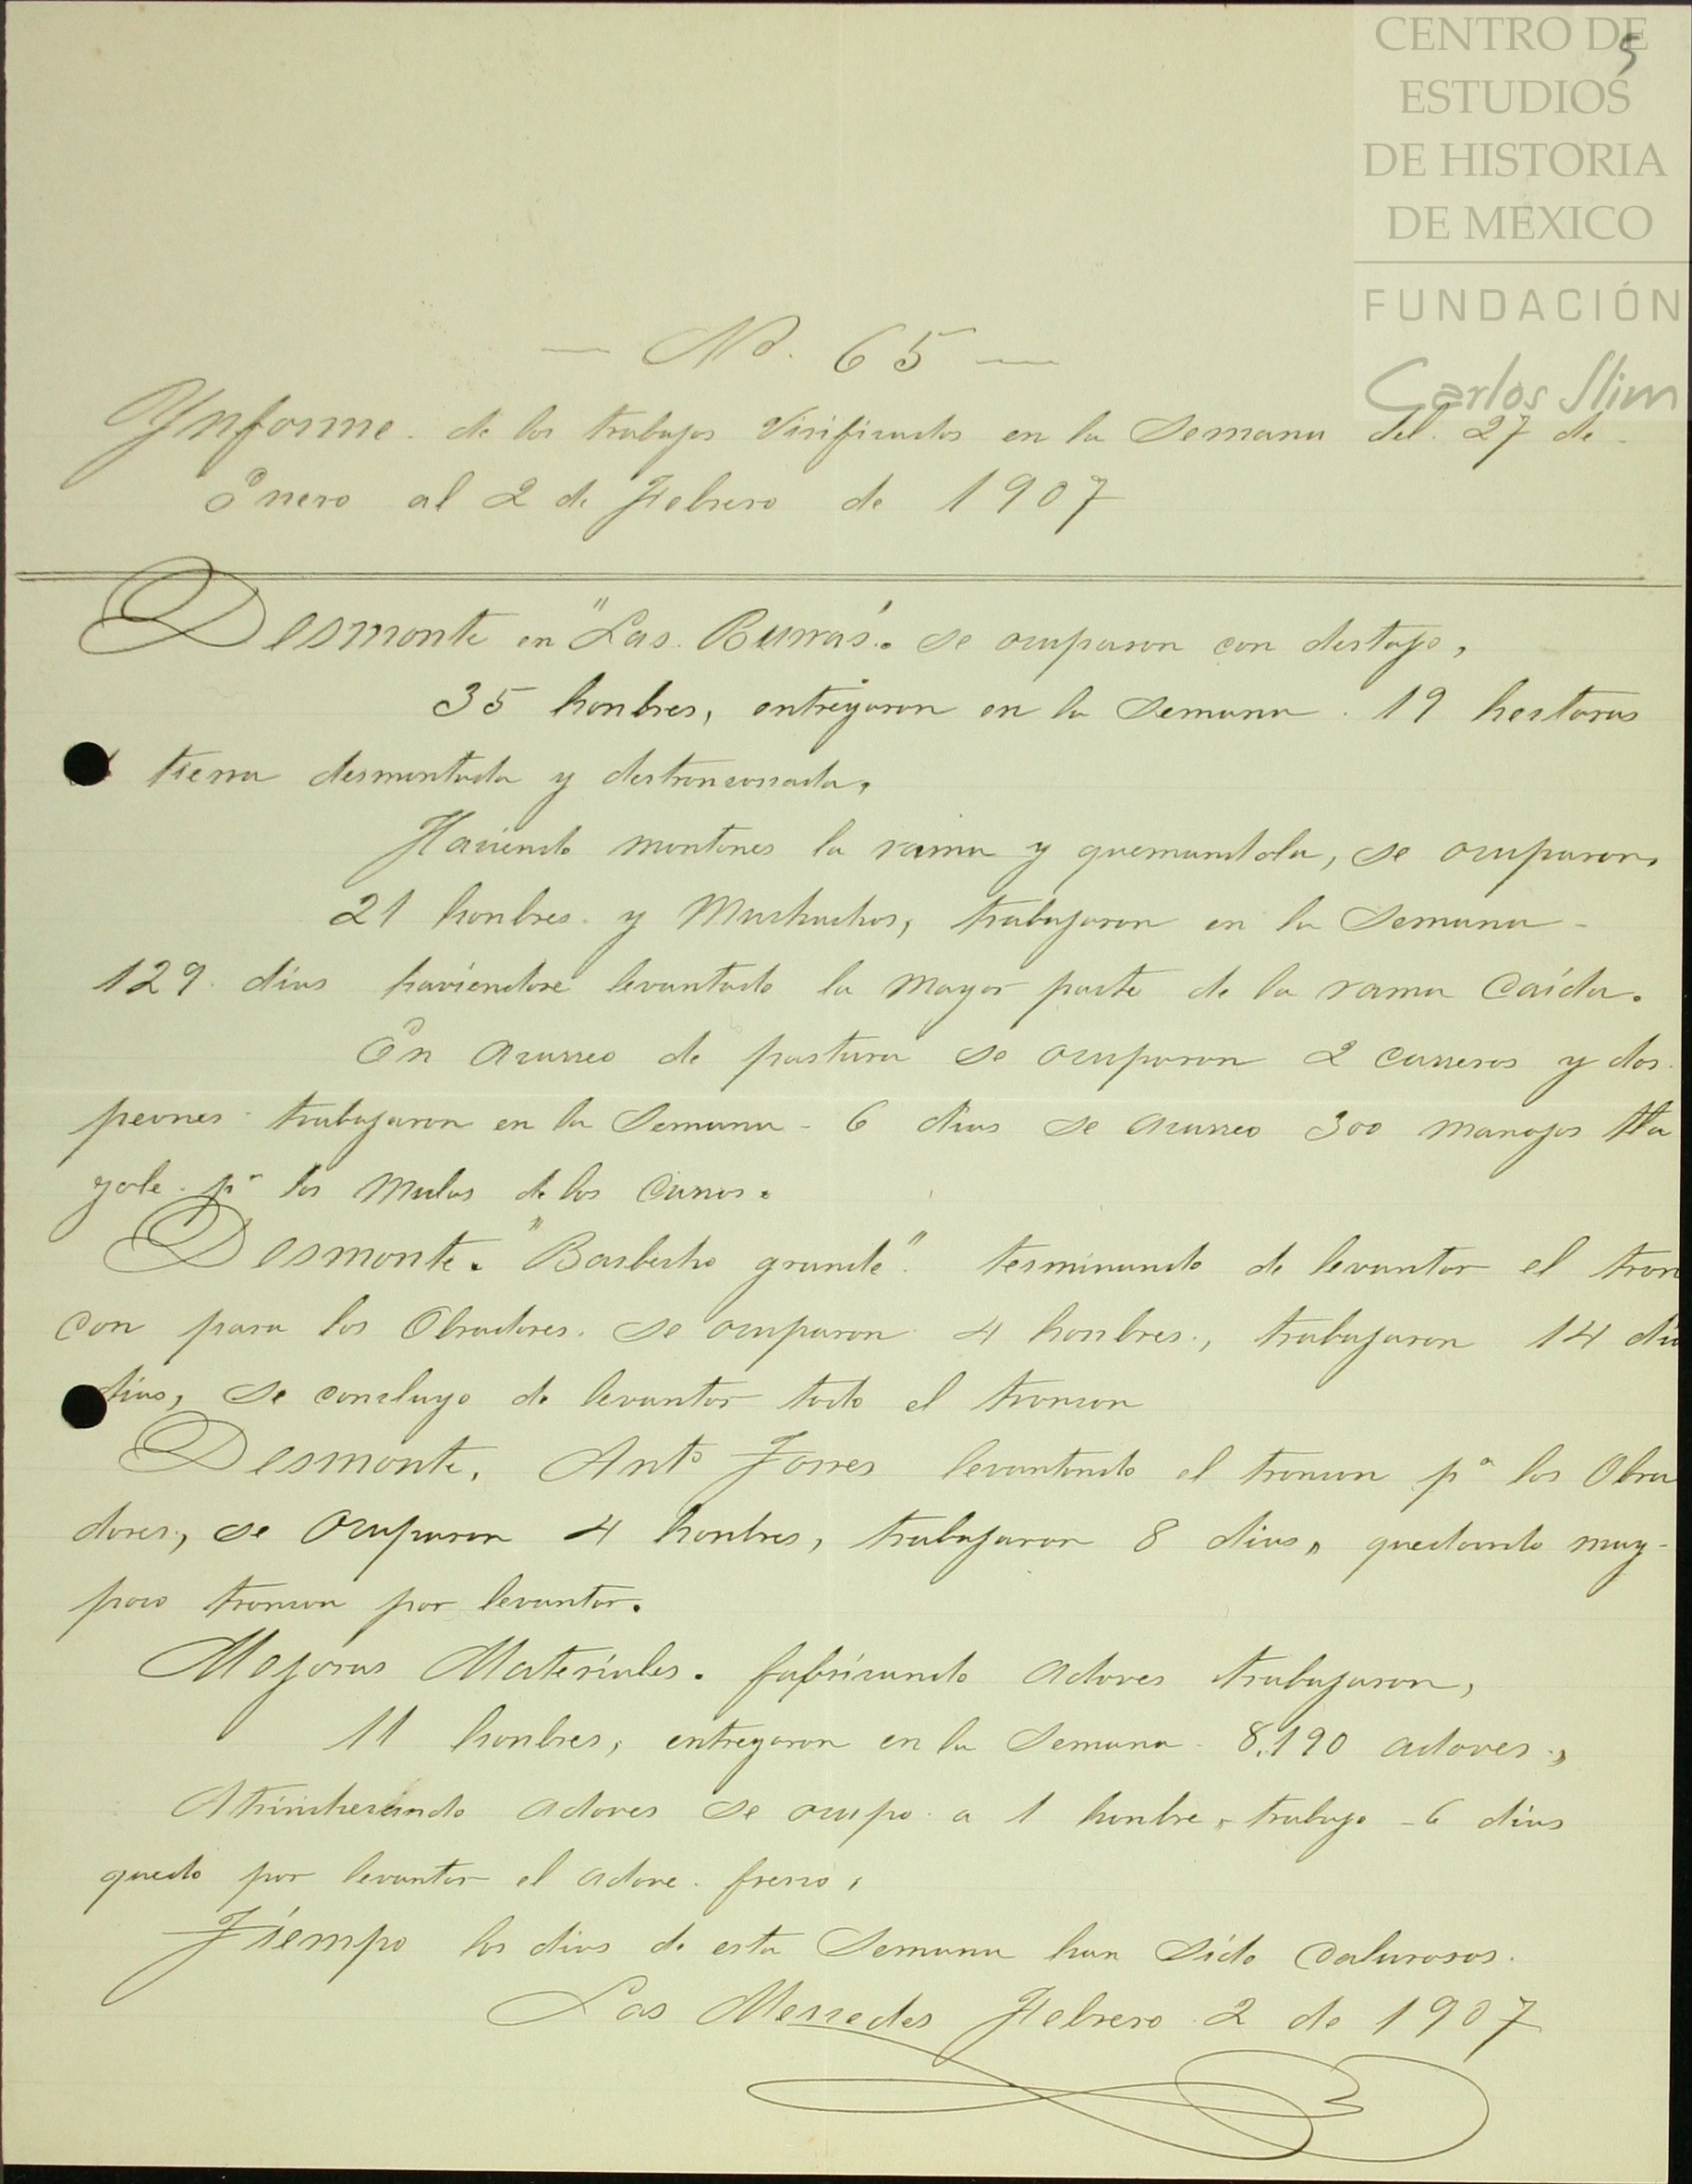 CENTRO DE
ESTUDIOS
DE HISTORIA
DE MÉXICO
FUNDACIÓN
Carlos Slim
5
— No. 65 —
Ynforme. de los trabajos Virificados en la Semana del. 27 de
Enero al 2 de Febrero de 1907
Desmonte en "Las Burras". se ocuparon con destajo,
35 honbres, entregaron en la Semana. 19 hectaras
tierra desmontada y destronconada.
Haciendo montones la rama y quemandola, se ocuparon,
21 honbres. y Muchachos, trabajaron en la Semana -
129. dias haciendose levantado la mayor parte de la rama Caída.
En acarreo de pastura se ocuparon 2 carreros y dos.
peones trabajaron en la Semana - 6 dias se acarreo 300 manojos tla
zole. pa los Mulas de los Carros.
Desmonte. "Barbecho grande". terminando de levantar el tron
con para los Obradores. se ocuparon 4 honbres., trabajaron 14 dia
dias, se concluyo de levantar todo el troncon
Desmonte, Anto Torres levantando el troncon pa los Obra
dores, se Ocuparon 4 honbres, trabajaron 8 dias, quedando muy-
poco troncon por levantar.
Mejoras Materiales. fabricando adoves trabajaron,
11 honbres, entregaron en la Semana. 8.190 adoves.,
Atrincherando adoves se ocupo. a 1 honbre, trabajo - 6 dias
quedo por levantar el adove. fresco,
Tiempo los dias de esta Semana han Sido Calurosos.
Las Mercedes Febrero 2 de 1907